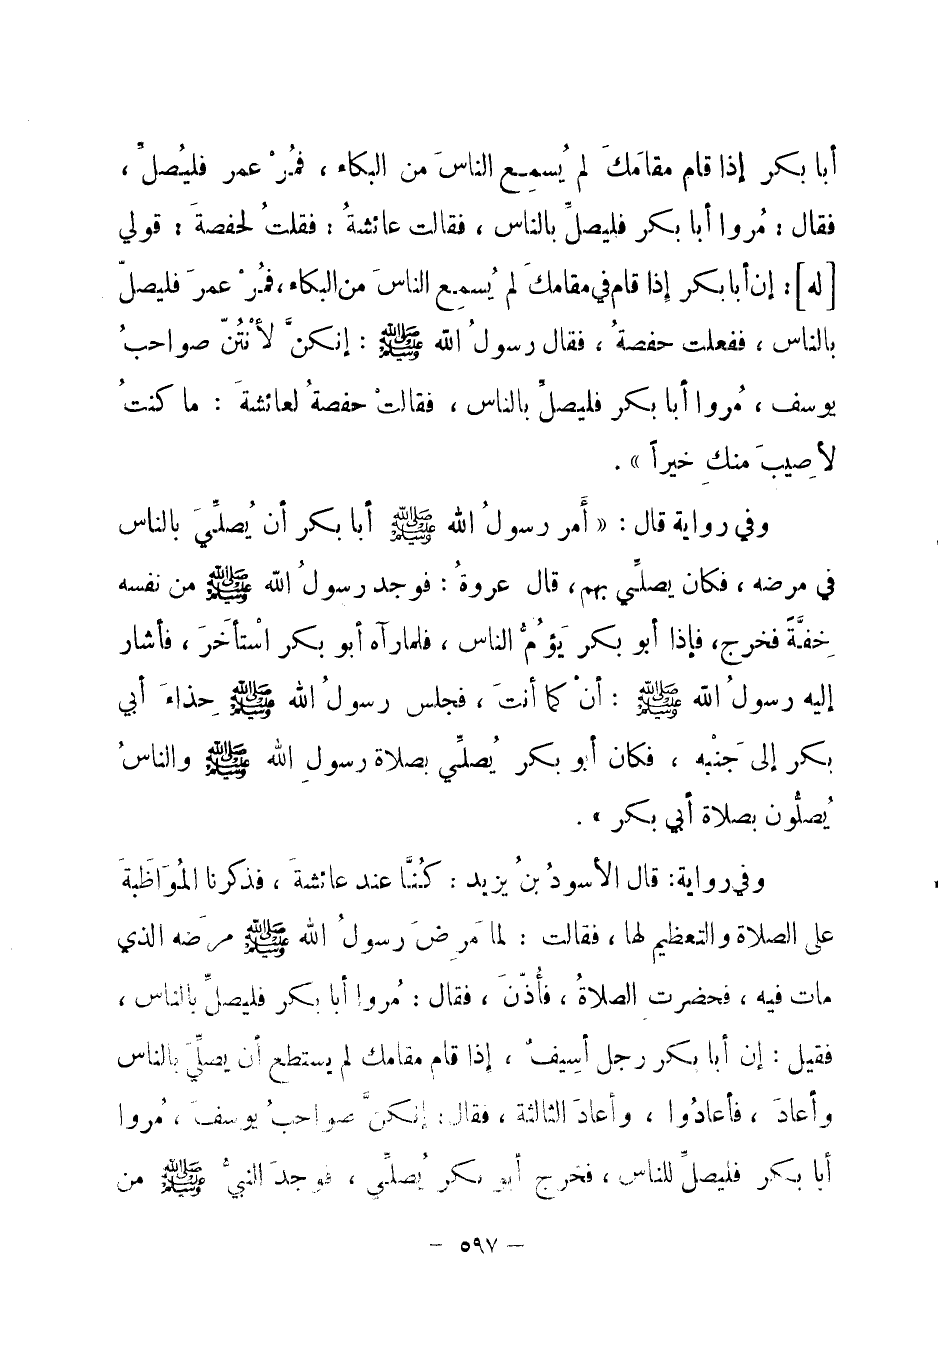 أبا بكر إذا قام مقامَكَ لم يُسمِع الناسَ من البكاء ، فمُرْ عمر فليُصلِّ ،
فقال : مُروا أبا بكر فليصلِّ بالناس ، فقالت عائشةُ : فقلتُ لحفصةَ : قولي
[له] : إن أبا بكر إذا قام في مقامكَ لم يُسمِع الناسَ من البكاء ، فمُرْ عمرَ فليصلِّ
بالناس ، ففعلت حفصةُ ، فقال رسولُ الله ﷺ : إنكنَّ لأنْتُنَّ صواحبُ
يوسف ، مُروا أبا بكر فليصلِّ بالناس ، فقالتْ حفصةُ لعائشةَ : ما كنتُ
لأصِيبَ منكِ خيراً » .
وفي رواية قال : « أَمر رسولُ الله ﷺ أبا بكر أن يُصلِّيَ بالناس
في مرضه ، فكان يصلِّي بهم ، قال عروةُ : فوجد رسولُ الله ﷺ من نفسه
خِفَّةً فخرج ، فإذا أبو بكر يَؤُمُّ الناس ، فلما رآه أبو بكر اسْتأخَرَ ، فأشار
إليه رسولُ الله ﷺ : أنْ كما أنتَ ، فجلس رسولُ الله ﷺ حِذاءَ أبي
بكر إلى جَنْبه ، فكان أبو بكر يُصلِّي بصلاة رسولِ الله ﷺ والناسُ
يُصلُّون بصلاة أبي بكر » .
وفي رواية : قال الأسودُ بنُ يزيد : كُنَّا عند عائشةَ ، فذكرنا المُوَاظَبةَ
على الصلاة والتعظيم لها ، فقالت : لما مَرِضَ رسولُ الله ﷺ مرَضه الذي
مات فيه ، فحضرت الصلاةُ ، فأُذّنَ ، فقال : مُروا أبا بكر فليصلِّ بالناس ،
فقيل : إن أبا بكر رجل أسِيفٌ ، إذا قام مقامك لم يستطع أن يصلِّيَ بالناس
وأعادَ ، فأعادُوا ، وأعادَ الثالثة ، فقال : إنكنَّ صواحبُ يوسفَ ، مُروا
أبا بكر فليصلِّ للناس ، فخرج أبو بكر يُصلِّي ، فوجدَ النبيُّ ﷺ من
– ٥٩٧ –